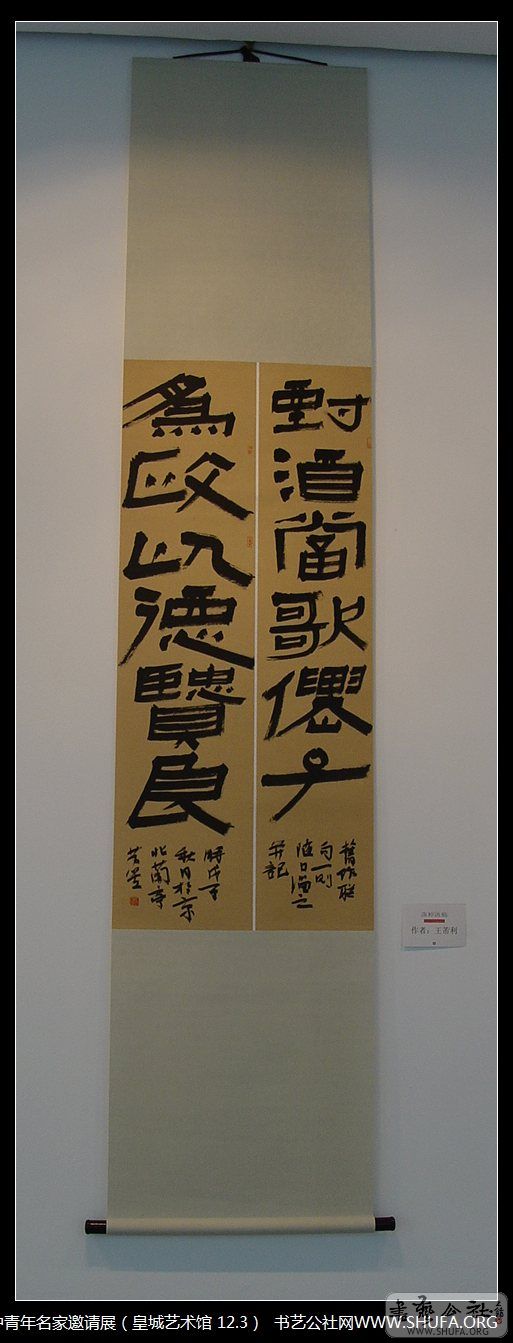 對酒當歌僊子
為政以德賢良
舊作聯
句一則
并記
時戊子
秋月於京
北蘭亭
作者：王芾利
中青年名家邀请展（皇城艺术馆 12.3） 书艺公社网WWW.SHUFA.ORG
書藝公社
WWW.SHUFA.ORG